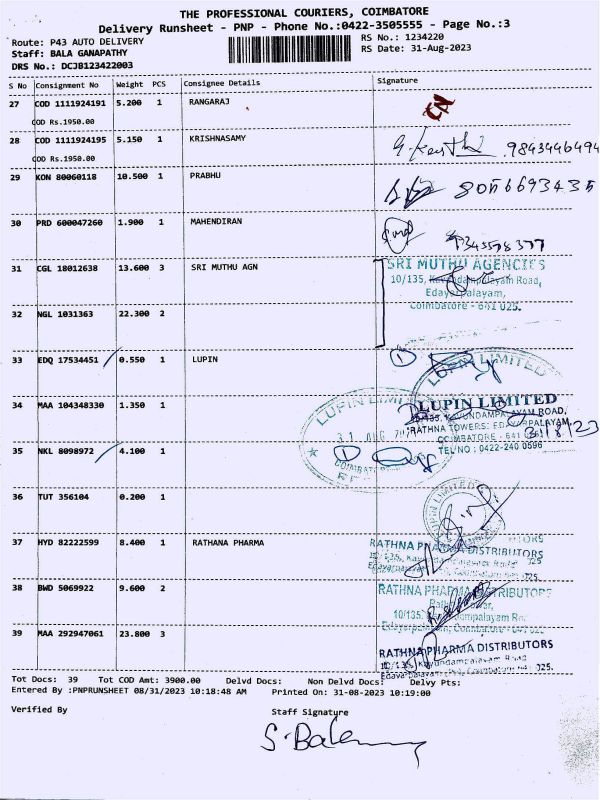 THE PROFESSIONAL COURIERS, COIMBATORE
Delivery Runsheet - PNP - Phone No.:0422-3505555 - Page No.:3
Route: P43 AUTO DELIVERY RS No.: 1234220
Staff: BALA GANAPATHY RS Date: 31-Aug-2023
DRS No.: DCJB123422003
S No Consignment No Weight PCS Consignee Details Signature
27 COD 1111924191 5.200 1 RANGARAJ
COD Rs.1950.00
28 COD 1111924195 5.150 1 KRISHNASAMY 9843446494
COD Rs.1950.00
29 KON 80060118 10.500 1 PRABHU 8056693435
30 PRD 600047260 1.900 1 MAHENDIRAN
31 CGL 18012638 13.600 3 SRI MUTHU AGN SRI MUTHU AGENCIES
10/135, Kavundampalayam Road,
Edayarpalayam,
Coimbatore - 641 025.
32 NGL 1031363 22.300 2
33 EDQ 17534451 0.550 1 LUPIN 1
LUPIN LIMITED
34 MAA 104348330 1.350 1 LUPIN LIMITED
10/135, KAVUNDAMPALAYAM ROAD,
RATHNA TOWERS: EDAYARPALAYAM,
COIMBATORE - 641 025
31/8/23
TEL/NO : 0422-240 0596
LUPIN LIMITED
31 AUG
COIMBATORE
35 NKL 8098972 4.100 1 1
36 TUT 356104 0.200 1 LUPIN LIMITED
37 HYD 82222599 8.400 1 RATHANA PHARMA RATHNA PHARMA DISTRIBUTORS
10/135, Kavundampalayam Road
Edayarpalayam, Coimbatore 641 025.
38 BWD 5069922 9.600 2 RATHNA PHARMA DISTRIBUTORS
10/135, Kavundampalayam Rd.
Edayarpalayam, Coimbatore - 641 025
39 MAA 292947061 23.800 3 RATHNA PHARMA DISTRIBUTORS
10/135, Kavundampalayam Road
Edayarpalayam, Coimbatore - 641 025.
Tot Docs: 39 Tot COD Amt: 3900.00 Delvd Docs: Non Delvd Docs: Delvy Pts:
Entered By :PNPRUNSHEET 08/31/2023 10:18:48 AM Printed On: 31-08-2023 10:19:00
Verified By Staff Signature
S. Bala